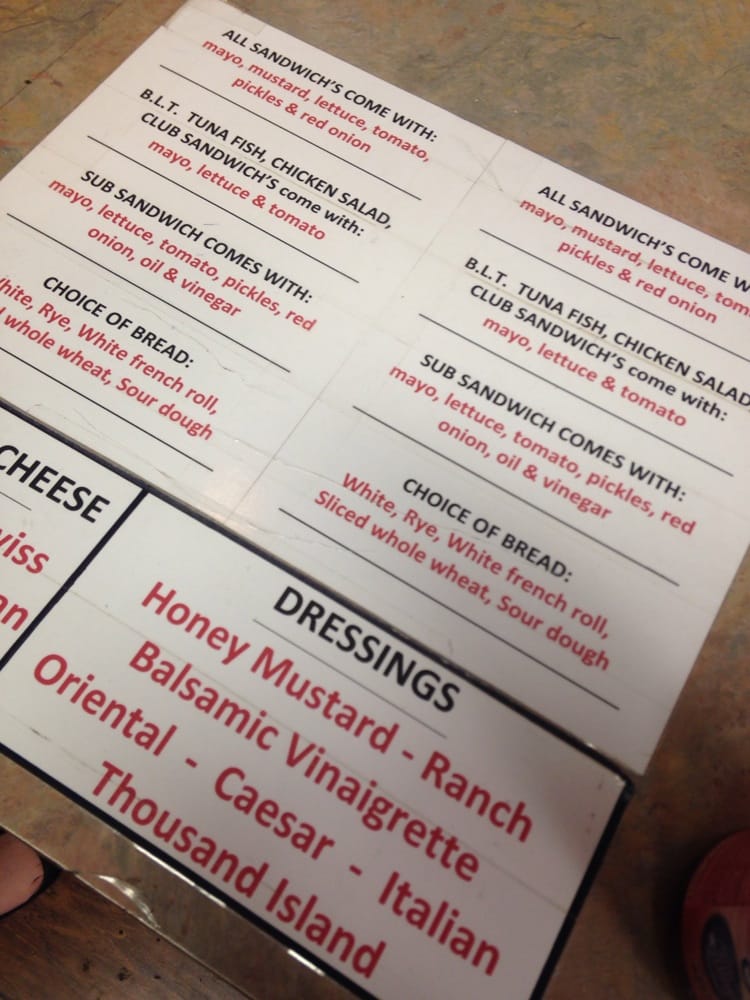 ALL SANDWICH'S COME WITH:
mayo, mustard, lettuce, tomato,
pickles & red onion
B.L.T. TUNA FISH, CHICKEN SALAD,
CLUB SANDWICH'S come with:
mayo, lettuce & tomato
SUB SANDWICH COMES WITH:
mayo, lettuce, tomato, pickles, red
onion, oil & vinegar
CHOICE OF BREAD:
hite, Rye, White french roll,
whole wheat, Sour dough
ALL SANDWICH'S COME W
mayo, mustard, lettuce, tom
pickles & red onion
B.L.T. TUNA FISH, CHICKEN SALAD
CLUB SANDWICH'S come with:
mayo, lettuce & tomato
SUB SANDWICH COMES WITH:
mayo, lettuce, tomato, pickles, red
onion, oil & vinegar
CHOICE OF BREAD:
White, Rye, White french roll,
Sliced whole wheat, Sour dough
CHEESE
wiss
an
DRESSINGS
Honey Mustard - Ranch
Balsamic Vinaigrette
Oriental - Caesar - Italian
Thousand Island